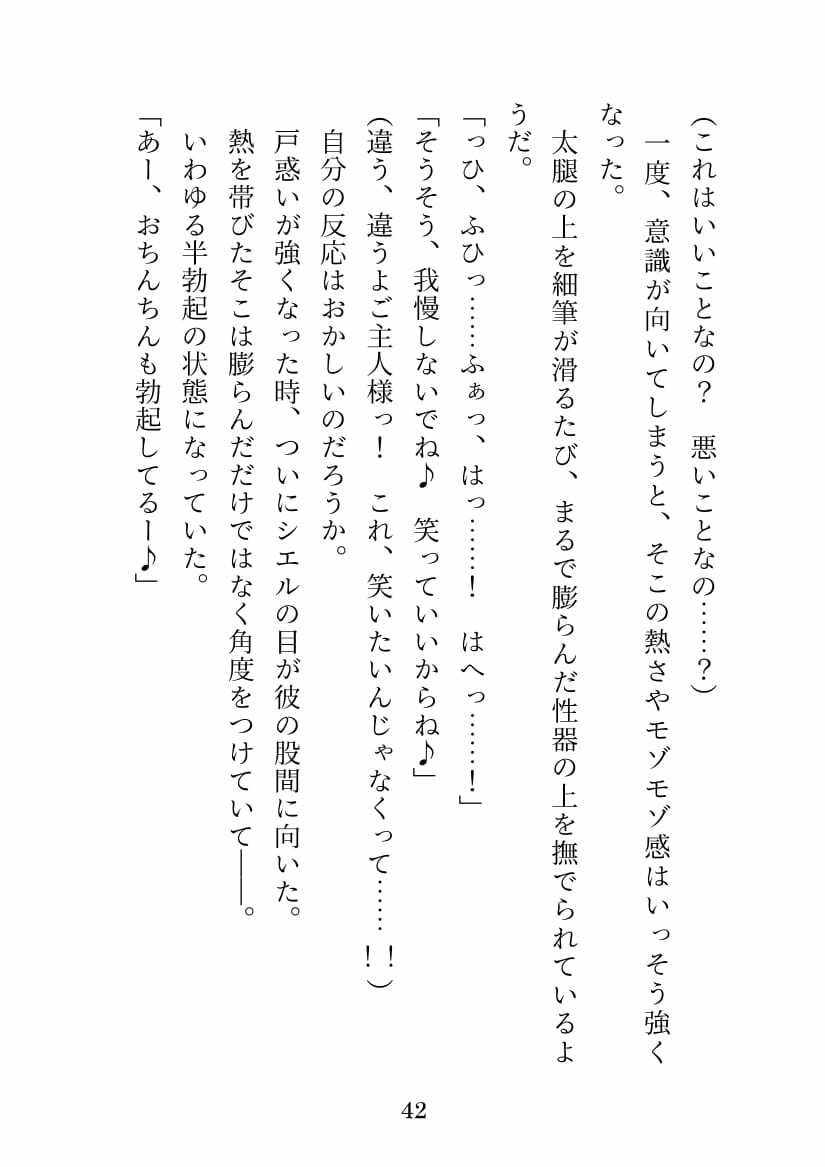 (これはいいことなの？　悪いことなの……？)
　一度、意識が向いてしまうと、そこの熱さやモゾモゾ感はいっそう強く
なった。
　太腿の上を細筆が滑るたび、まるで膨らんだ性器の上を撫でられているよ
うだ。
「っひ、ふひっ……ふぁっ、はっ……！　はへっ……！」
「そうそう、我慢しないでね♪　笑っていいからね♪」
(違う、違うよご主人様っ！　これ、笑いたいんじゃなくって……！！)
　自分の反応はおかしいのだろうか。
　戸惑いが強くなった時、ついにシエルの目が彼の股間に向いた。
　熱を帯びたそこは膨らんだだけではなく角度をつけていて――。
　いわゆる半勃起の状態になっていた。
「あー、おちんちんも勃起してるー♪」
42